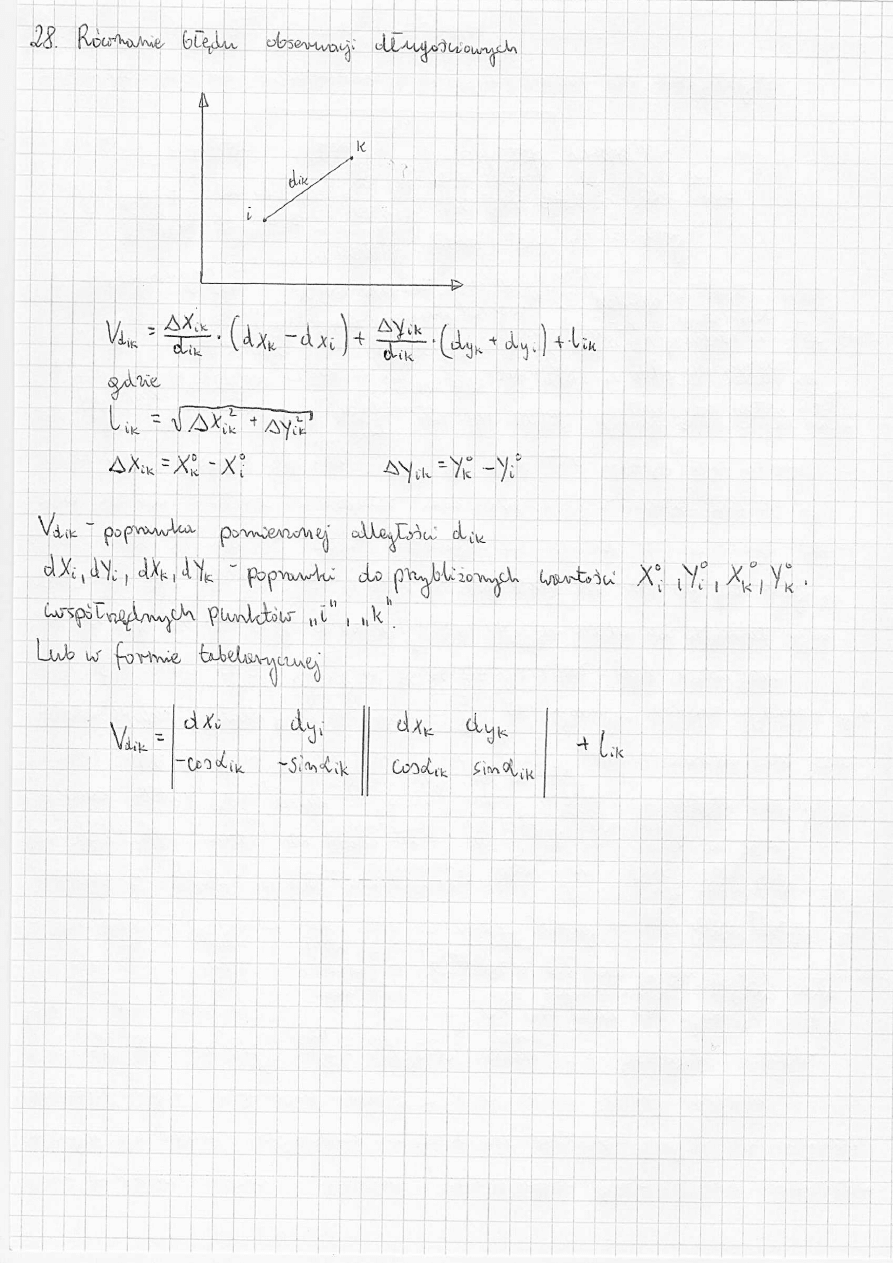 28. Równanie błędu obserwacji długościowych
k
dik
i
Vdik = ΔXik/dik · (dXk - dxi) + Δyik/dik · (dyk + dyi) + lik
gdzie
lik = √ΔXik² + Δyik²
ΔXik = Xk° - Xi° Δyik = Yk° - Yi°
Vdik - poprawka pomierzonej odległości dik
dXi, dYi, dXk, dYk - poprawki do przybliżonych wartości Xi°, Yi°, Xk°, Yk°.
współrzędnych punktów „i", „k".
Lub w formie tabelarycznej
Vdik = | dxi dyi || dxk dyk | + lik
-cosαik -sinαik cosαik sinαik